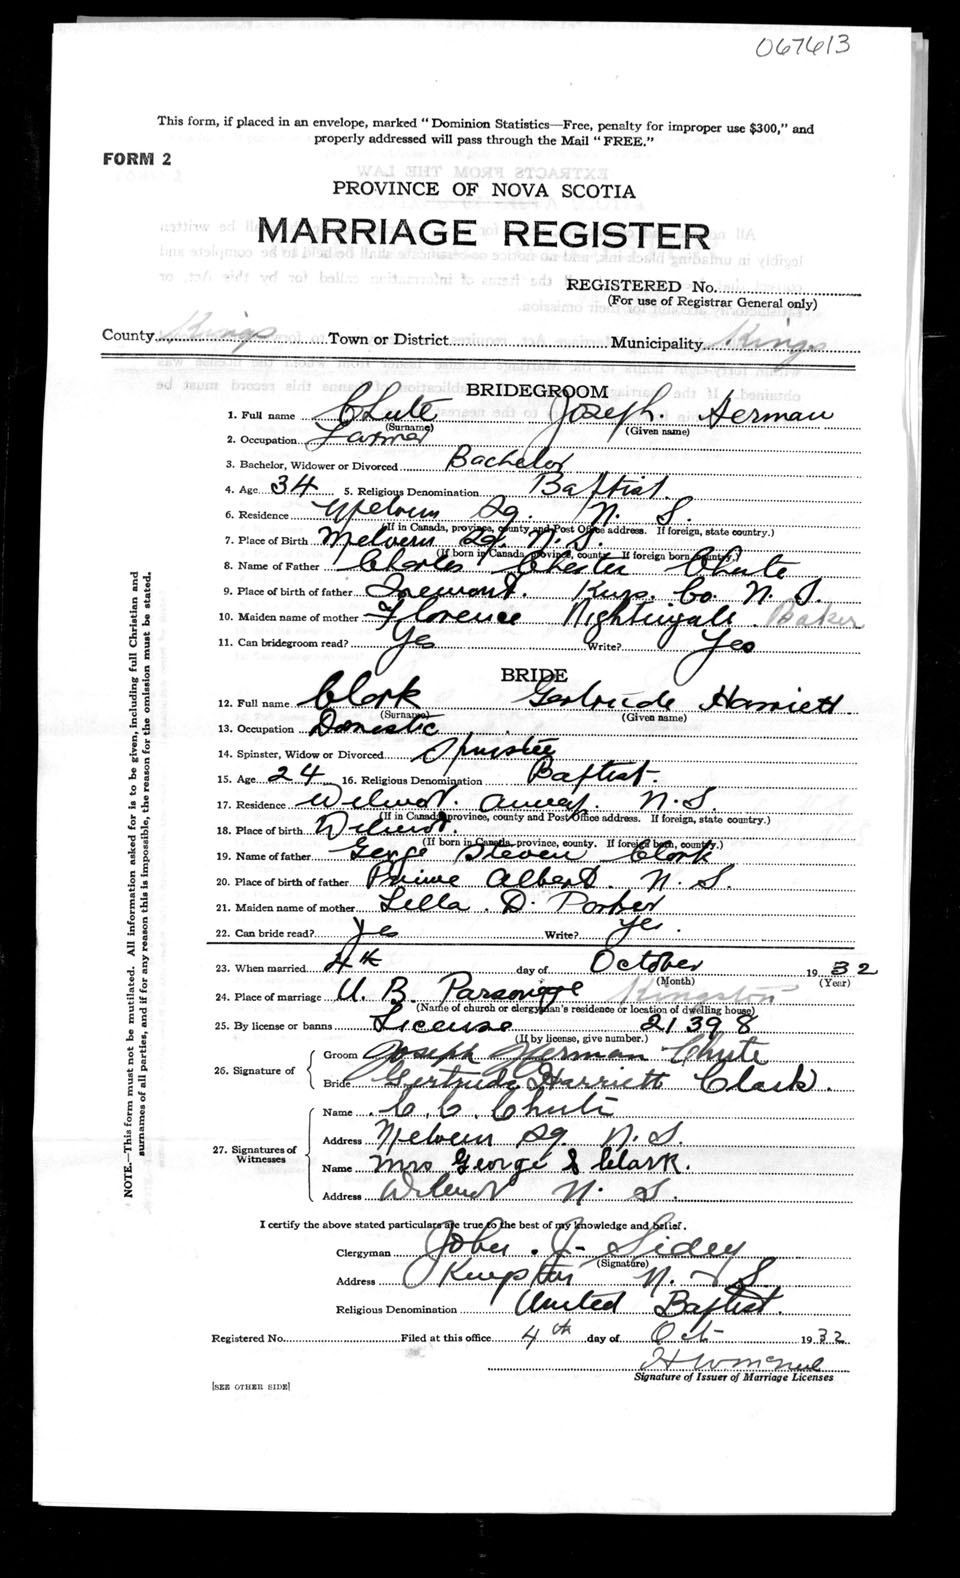 067613
This form, if placed in an envelope, marked "Dominion Statistics—Free, penalty for improper use $300," and
properly addressed will pass through the Mail "FREE."
FORM 2
PROVINCE OF NOVA SCOTIA
MARRIAGE REGISTER
REGISTERED No.
(For use of Registrar General only)
County Kings Town or District Municipality Kings
BRIDEGROOM
1. Full name Chute Joseph Herman
(Surname) (Given name)
2. Occupation Farmer
3. Bachelor, Widower or Divorced Bachelor
4. Age 34 5. Religious Denomination Baptist.
6. Residence Melvern Sq. N. S.
(If in Canada, province, county and Post Office address. If foreign, state country.)
7. Place of Birth Melvern Sq. N. S.
(If born in Canada, province, county. If foreign born, country.)
8. Name of Father Charles Chester Chute
9. Place of birth of father Tremont. Kings. Co. N. S.
10. Maiden name of mother Florence Nightingale. Baker
11. Can bridegroom read? Yes Write? Yes
BRIDE
12. Full name Clark Gertrude Harriett
(Surname) (Given name)
13. Occupation Domestic
14. Spinster, Widow or Divorced Spinster
15. Age 24 16. Religious Denomination Baptist.
17. Residence Wilmot. Annap. N. S.
(If in Canada, province, county and Post Office address. If foreign, state country.)
18. Place of birth Wilmot.
(If born in Canada, province, county. If foreign born, country.)
19. Name of father George Steven Clark
20. Place of birth of father Prince Albert. N. S.
21. Maiden name of mother Lella. D. Porter
22. Can bride read? Yes Write? Yes.
23. When married 4th day of October 1932
(Month) (Year)
24. Place of marriage U. B. Parsonage Kingston
(Name of church or clergyman's residence or location of dwelling house)
25. By license or banns License 21398
(If by license, give number.)
26. Signature of Groom Joseph Herman Chute
Bride Gertrude Harriett Clark.
27. Signatures of Witnesses
Name C. C. Chute
Address Melvern Sq. N. S.
Name Mrs George S Clark.
Address Wilmot N. S.
I certify the above stated particulars are true to the best of my knowledge and belief.
Clergyman John. J. Sidey
(Signature)
Address Kingston N. S.
Religious Denomination United Baptist.
Registered No. Filed at this office 4th day of Oct 1932
Signature of Issuer of Marriage Licenses
[SEE OTHER SIDE]
NOTE.—This form must not be mutilated. All information asked for is to be given, including full Christian and
surnames of all parties, and if for any reason this is impossible, the reason for the omission must be stated.